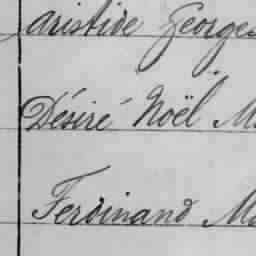 Aristide Georges
Désiré Noël M
Ferdinand Ma